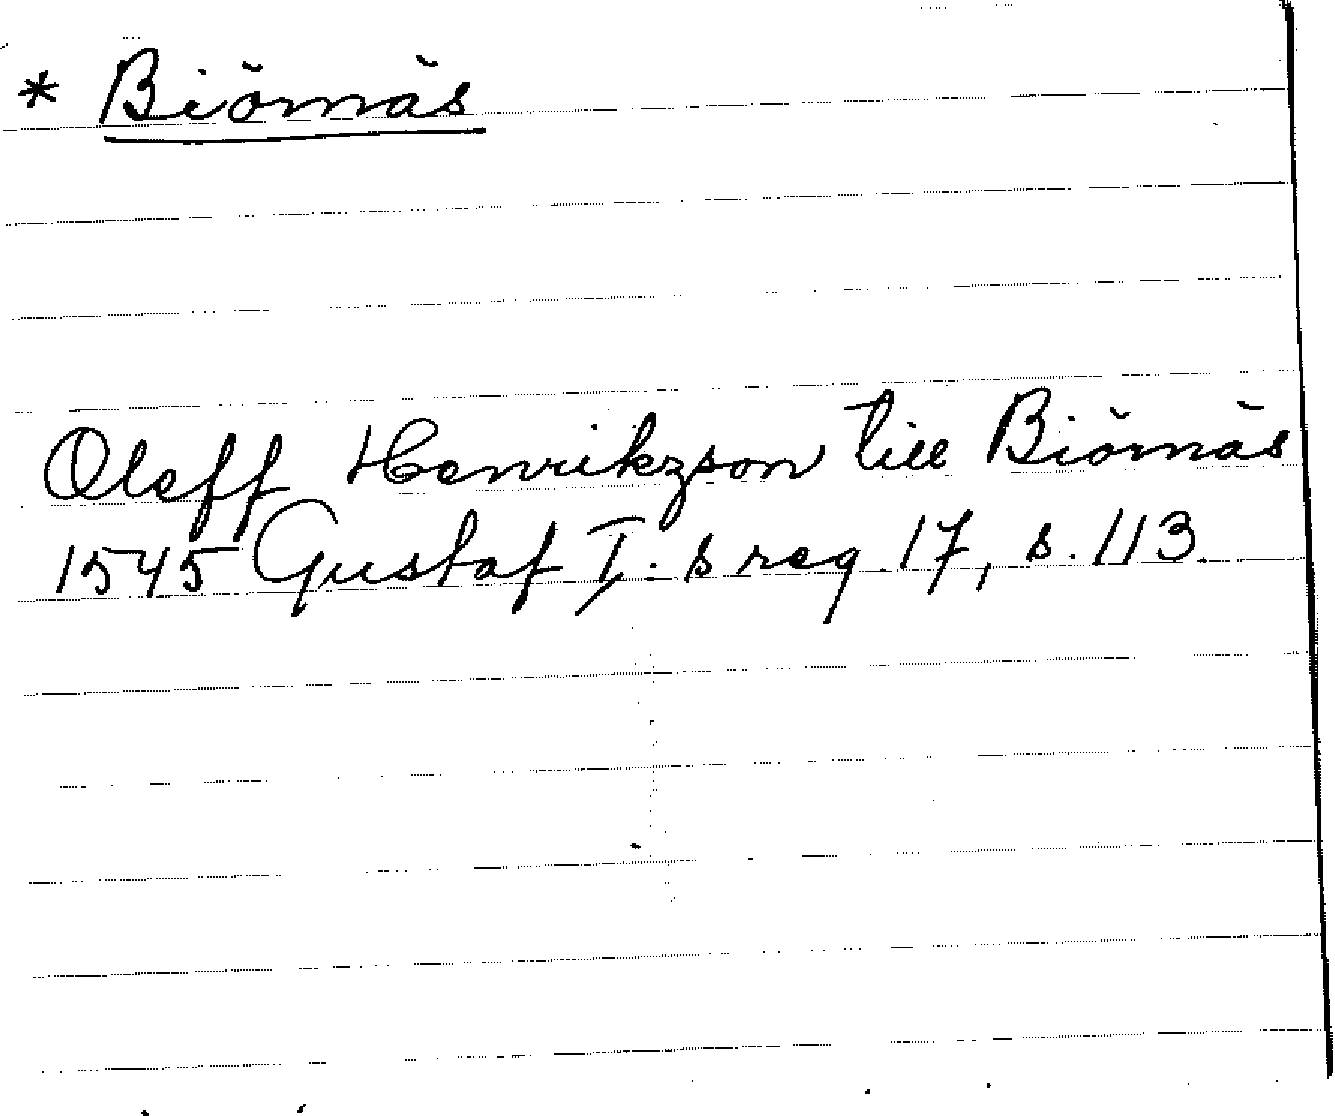 * Biörnäs
Oleff Henrikzson till Biörnäs
1545 Gustaf I. s reg. 17, s. 113.